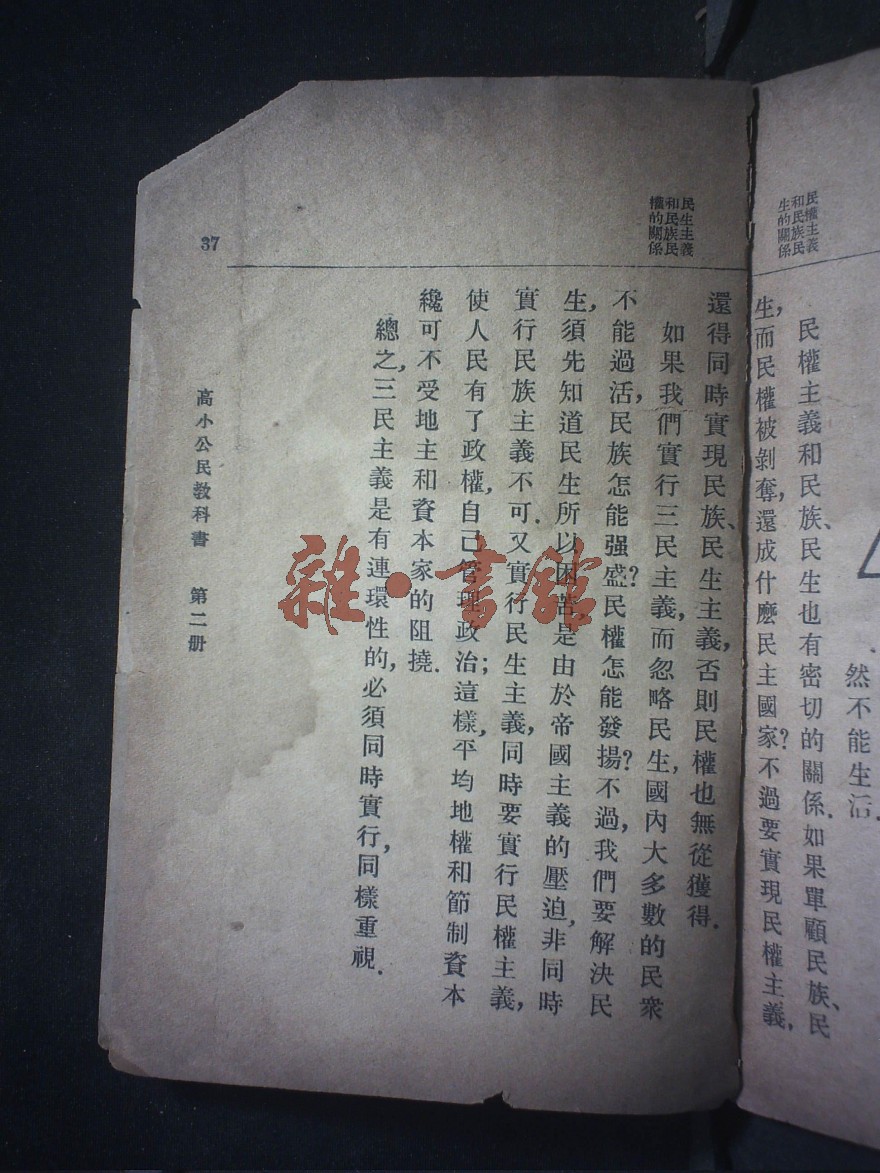 然不能生活.
民權主義
和民族民
生的關係
民權主義和民族、民生也有密切的關係.如果單顧民族、民
生,而民權被剝奪,還成什麽民主國家?不過要實現民權主義,
民生主義
和民族民
權的關係
還得同時實現民族、民生主義,否則民權也無從獲得.
如果我們實行三民主義,而忽略民生,國內大多數的民衆
不能過活,民族怎能强盛?民權怎能發揚?不過,我們要解決民
生,須先知道民生所以困苦,是由於帝國主義的壓迫,非同時
實行民族主義不可.又實行民生主義,同時要實行民權主義,
使人民有了政權,自己管理政治;這樣,平均地權和節制資本
纔可不受地主和資本家的阻撓.
總之,三民主義是有連環性的,必須同時實行,同樣重視.
高小公民教科書 第二册
37
雜·書館